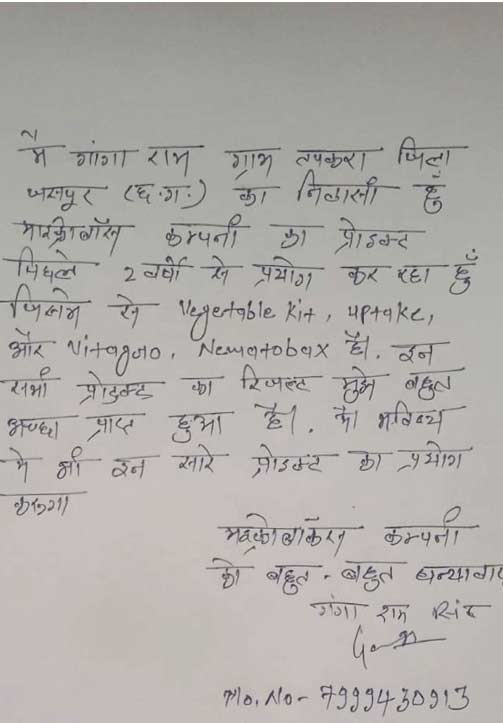 मै गांगा राम ग्राम तपकरा जिला
जशपुर (छ.ग.) का निवासी हुँ
माइक्रोबॉक्स कम्पनी का प्रोडक्ट
पिछले 2 वर्षो से प्रयोग कर रहा हुँ
जिसमे से Vegetable Kit, uptake,
और Vitagro, Nematobax है। इन
सभी प्रोडक्ट का रिजल्ट मुझे बहुत
अच्छा प्राप्त हुआ है। मै भविष्य
मे भी इन सारे प्रोडक्ट का प्रयोग
करूंगा
माइक्रोबॉक्स कम्पनी
को बहुत - बहुत धन्यावाद
गंगा राम सिंह
Mo. No - 7999430913